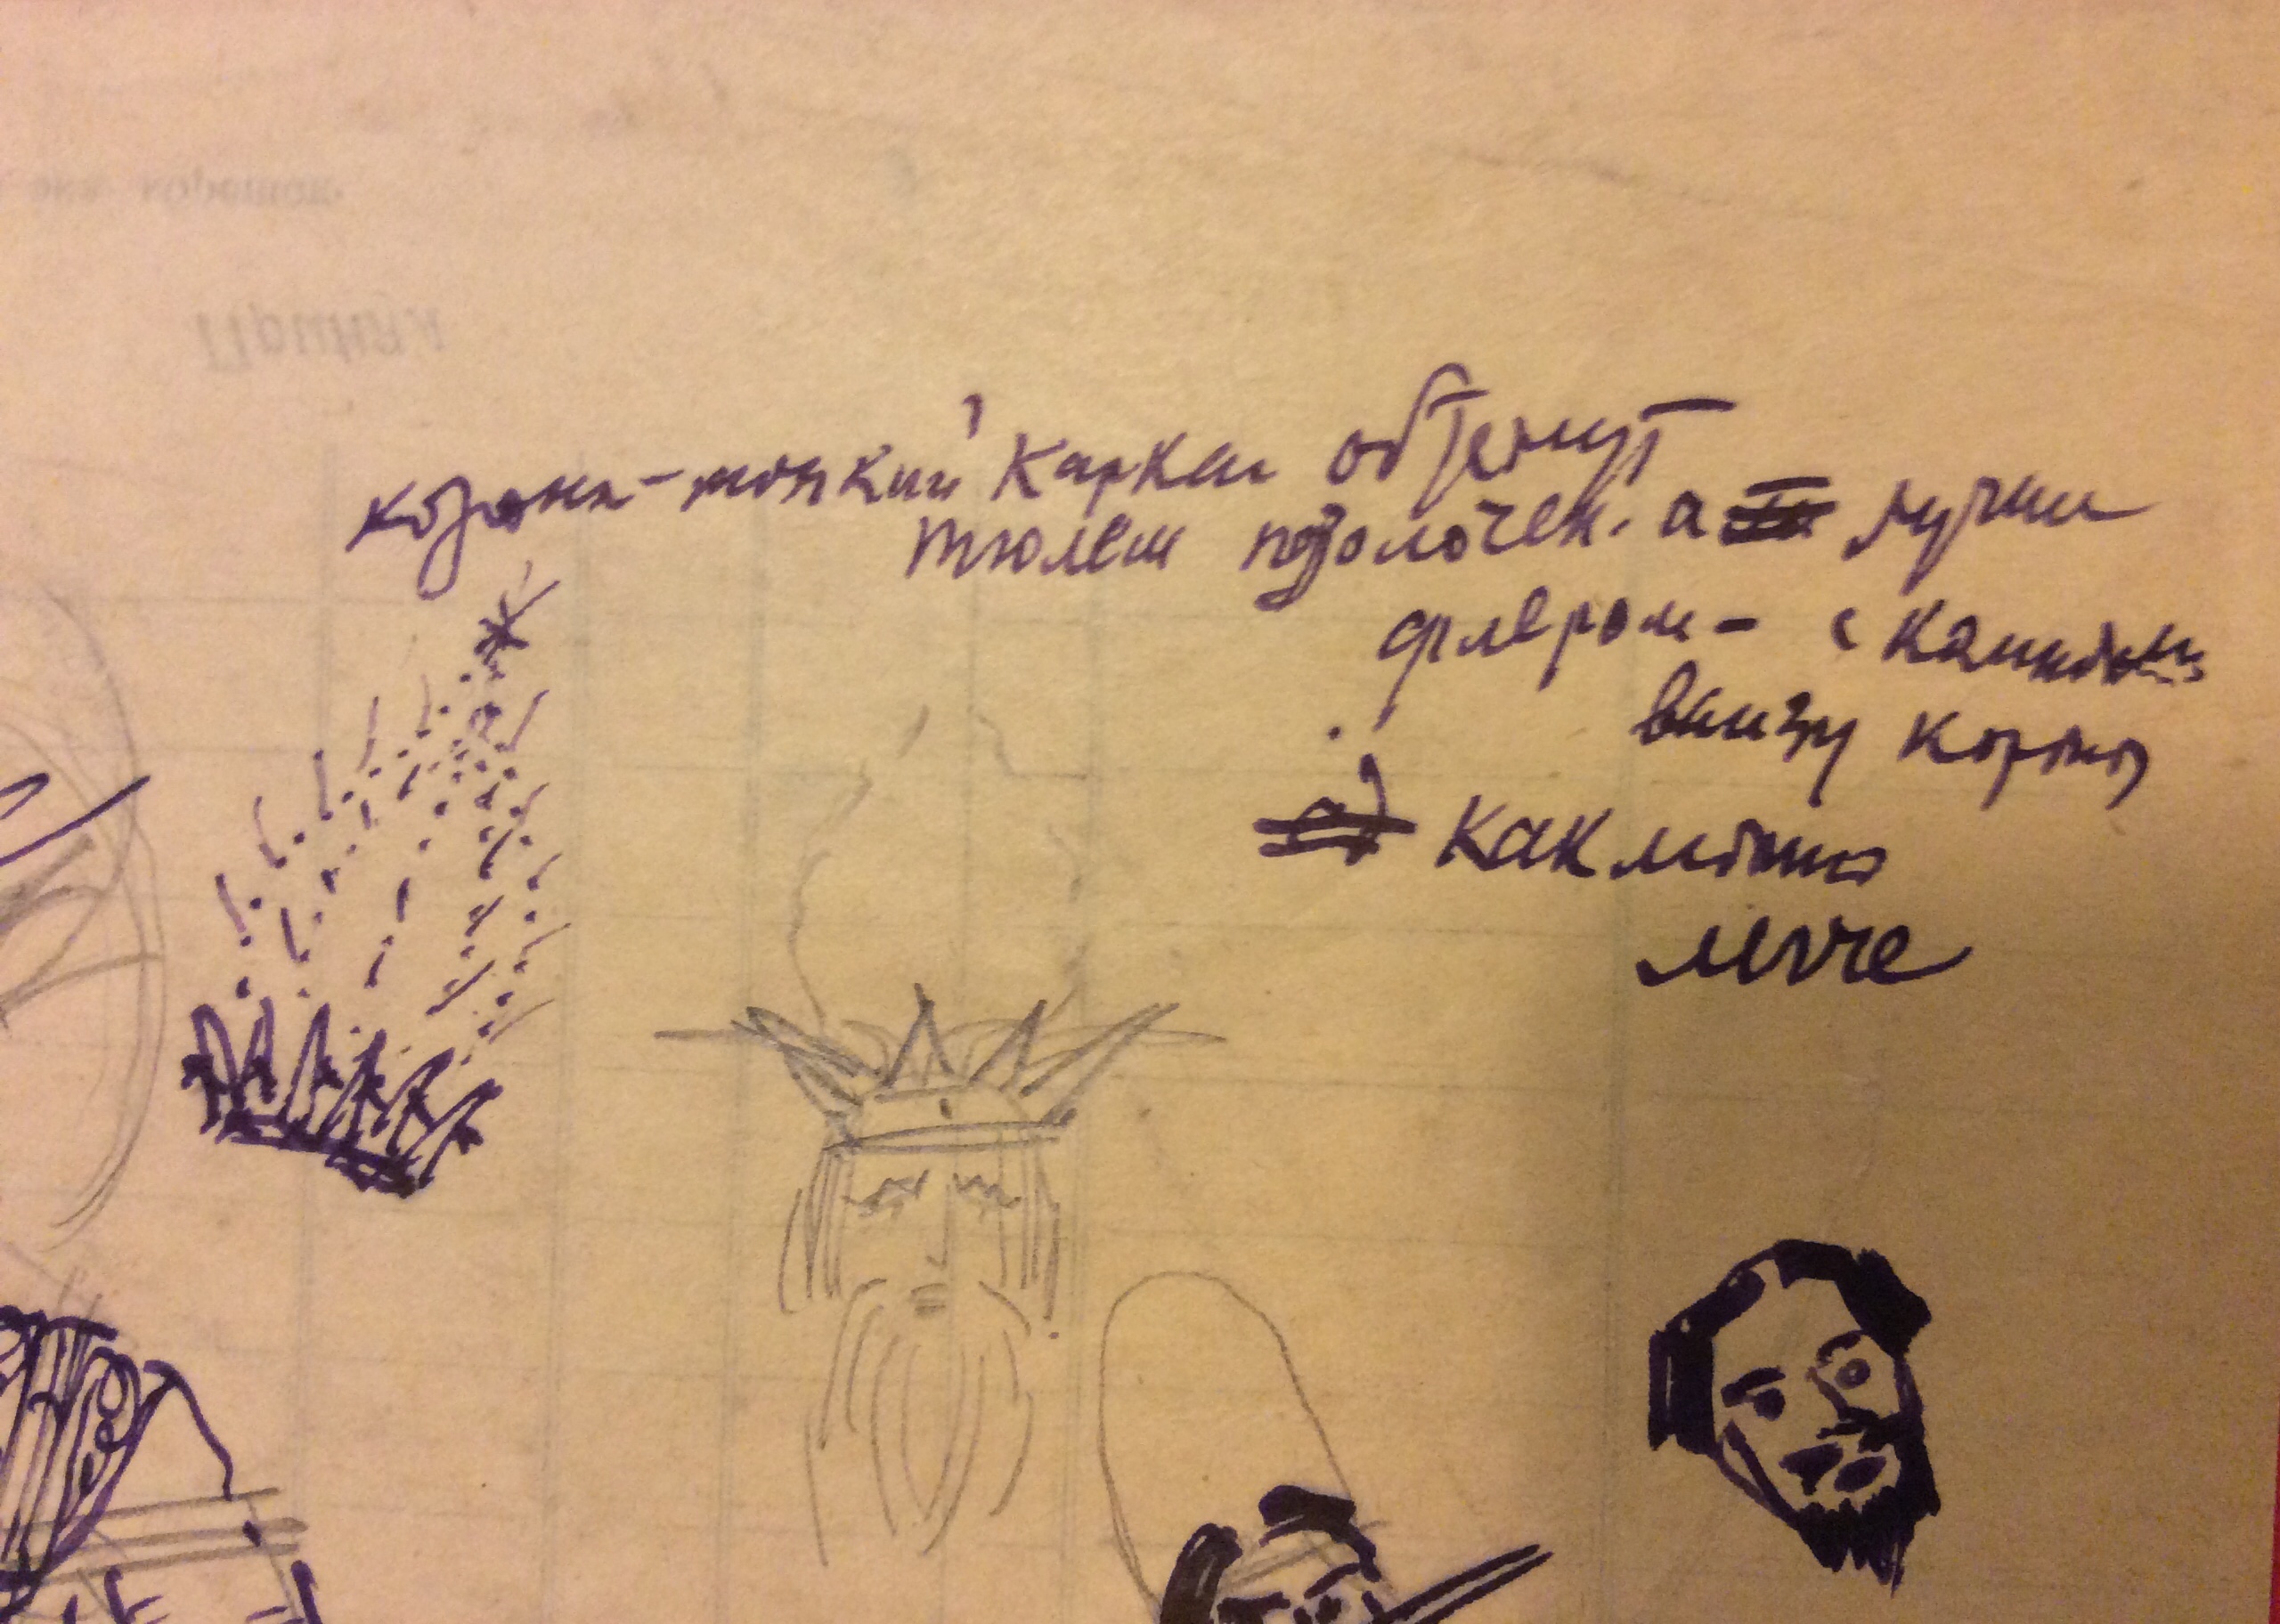 корона - тонкий каркас обтянут
тюлем позолочен. а лучше
флером - с камнями
внизу короны
как можно
легче